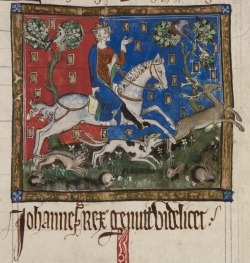 Johannes REX genuit videlicet